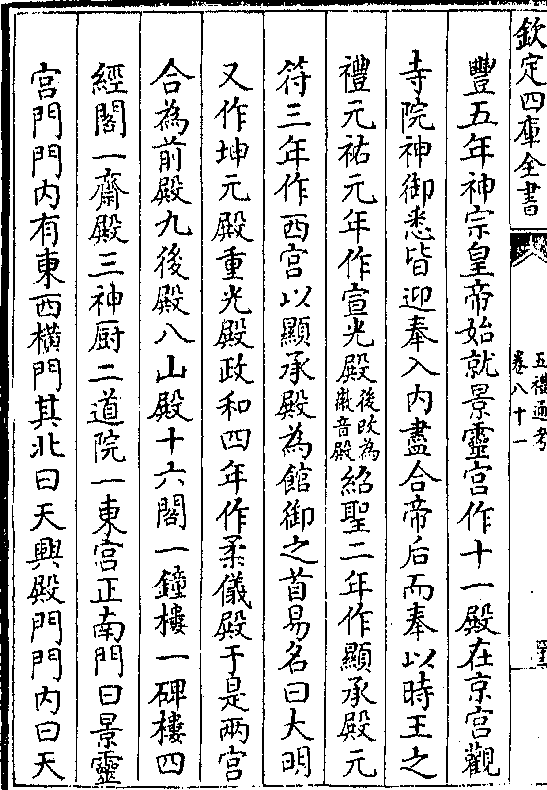 欽定四庫全書
五禮通考
卷八十一
豐五年神宗皇帝始就景靈宮作十一殿在京宮觀
寺院神御悉皆迎奉入內盡合帝后而奉以時王之
禮元祐元年作宣光殿後改為徽音殿紹聖二年作顯承殿元
符三年作西宮以顯承殿為館御之首易名曰大明
又作坤元殿重光殿政和四年作柔儀殿于是兩宮
合為前殿九後殿八山殿十六閣一鐘樓一碑樓四
經閣一齋殿三神厨二道院一東宮正南門曰景靈
宮門門內有東西橫門其北曰天興殿門門內曰天